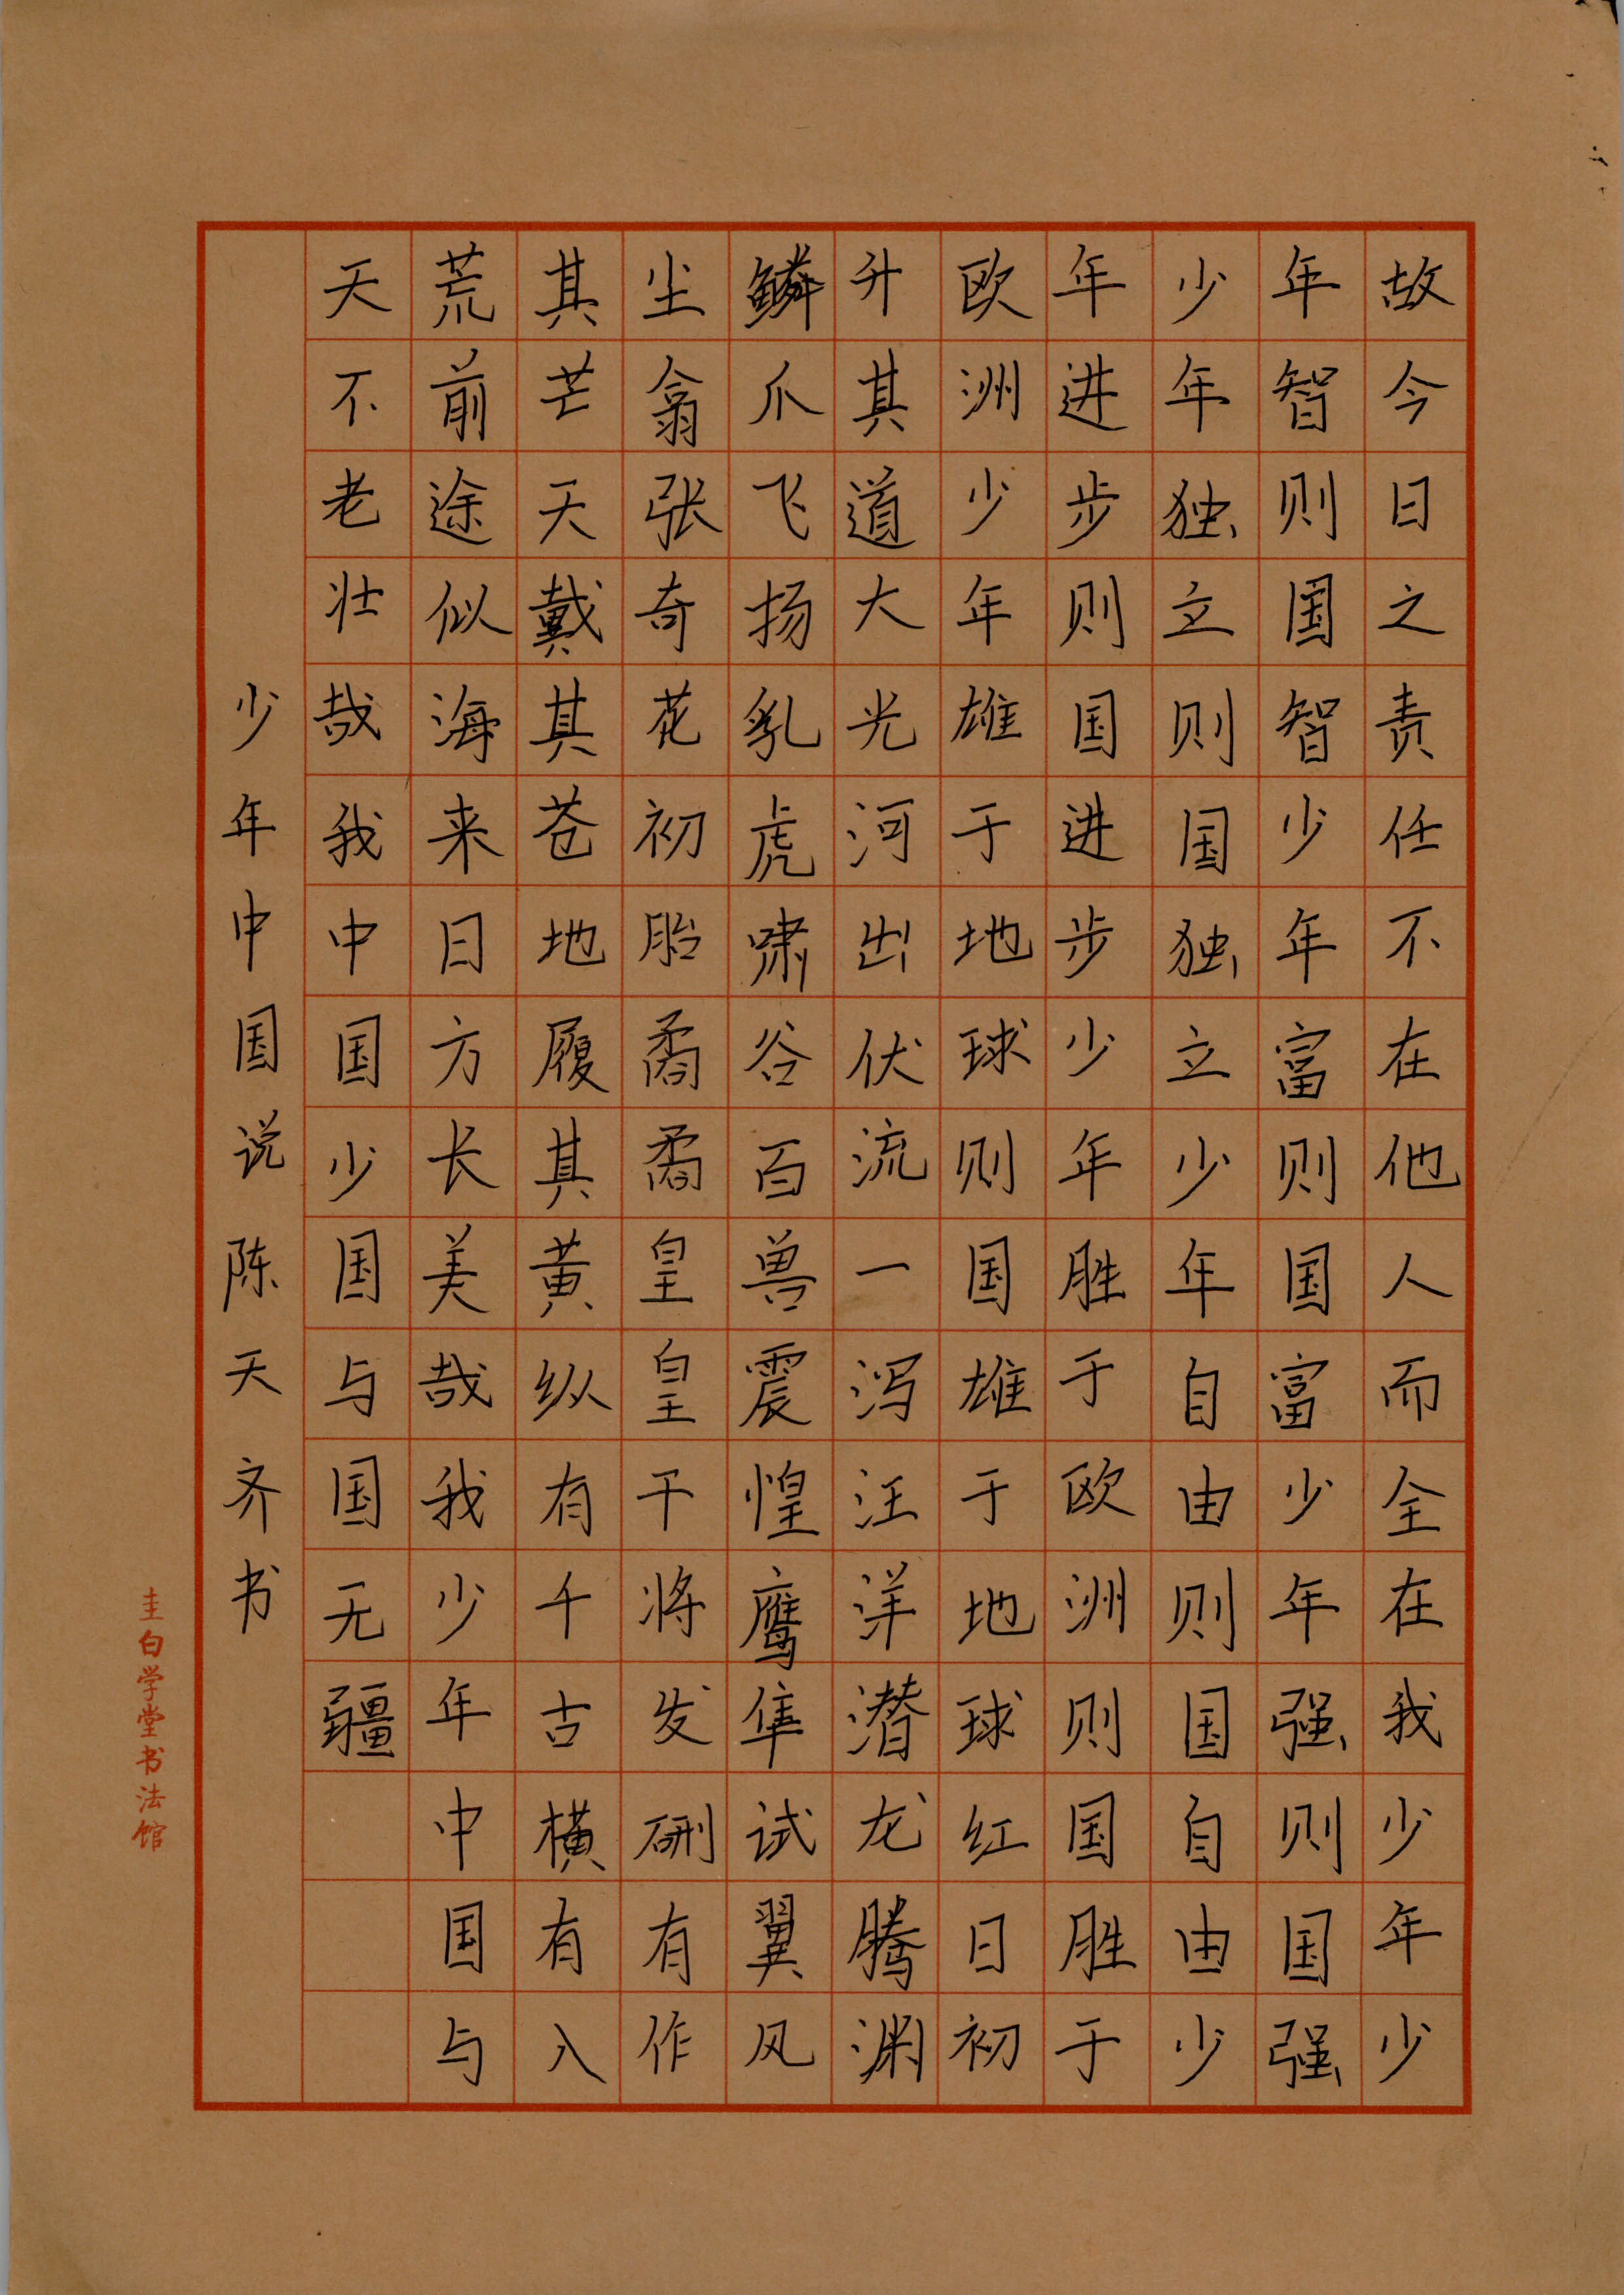 故今日之责任不在他人而全在我少年少
年智则国智少年富则国富少年强则国强
少年独立则国独立少年自由则国自由少
年进步则国进步少年胜于欧洲则国胜于
欧洲少年雄于地球则国雄于地球红日初
升其道大光河出伏流一泻汪洋潜龙腾渊
鳞爪飞扬乳虎啸谷百兽震惶鹰隼试翼风
尘翕张奇花初胎矞矞皇皇干将发硎有作
其芒天戴其苍地履其黄纵有千古横有八
荒前途似海来日方长美哉我少年中国与
天不老壮哉我中国少国与国无疆
少年中国说陈天齐书
圭白学堂书法馆